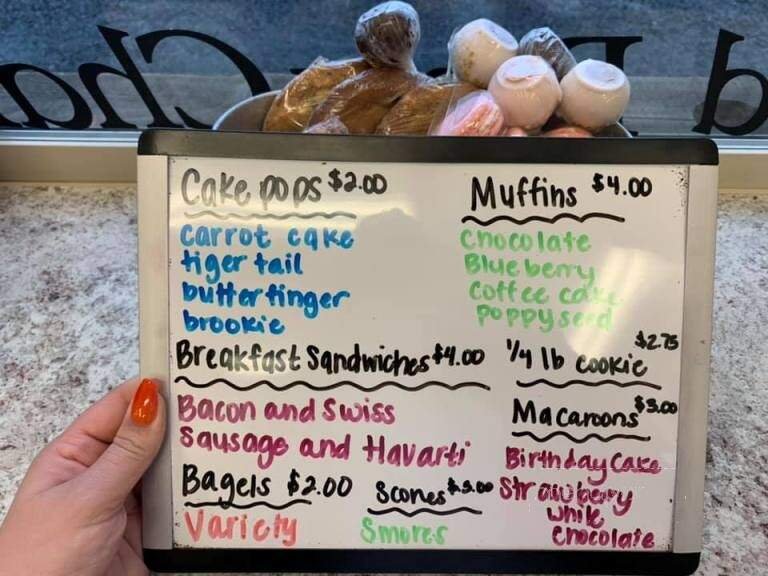 Cake pops $2.00
carrot cake
tiger tail
butterfinger
brookie
Muffins $4.00
Chocolate
Blueberry
Coffee cake
poppyseed
Breakfast Sandwiches $4.00
Bacon and Swiss
Sausage and Havarti
1/4 lb cookie $2.75
Macaroons $3.00
Birthday Cake
Strawberry
White
Chocolate
Bagels $2.00
Variety
Scones
Smores